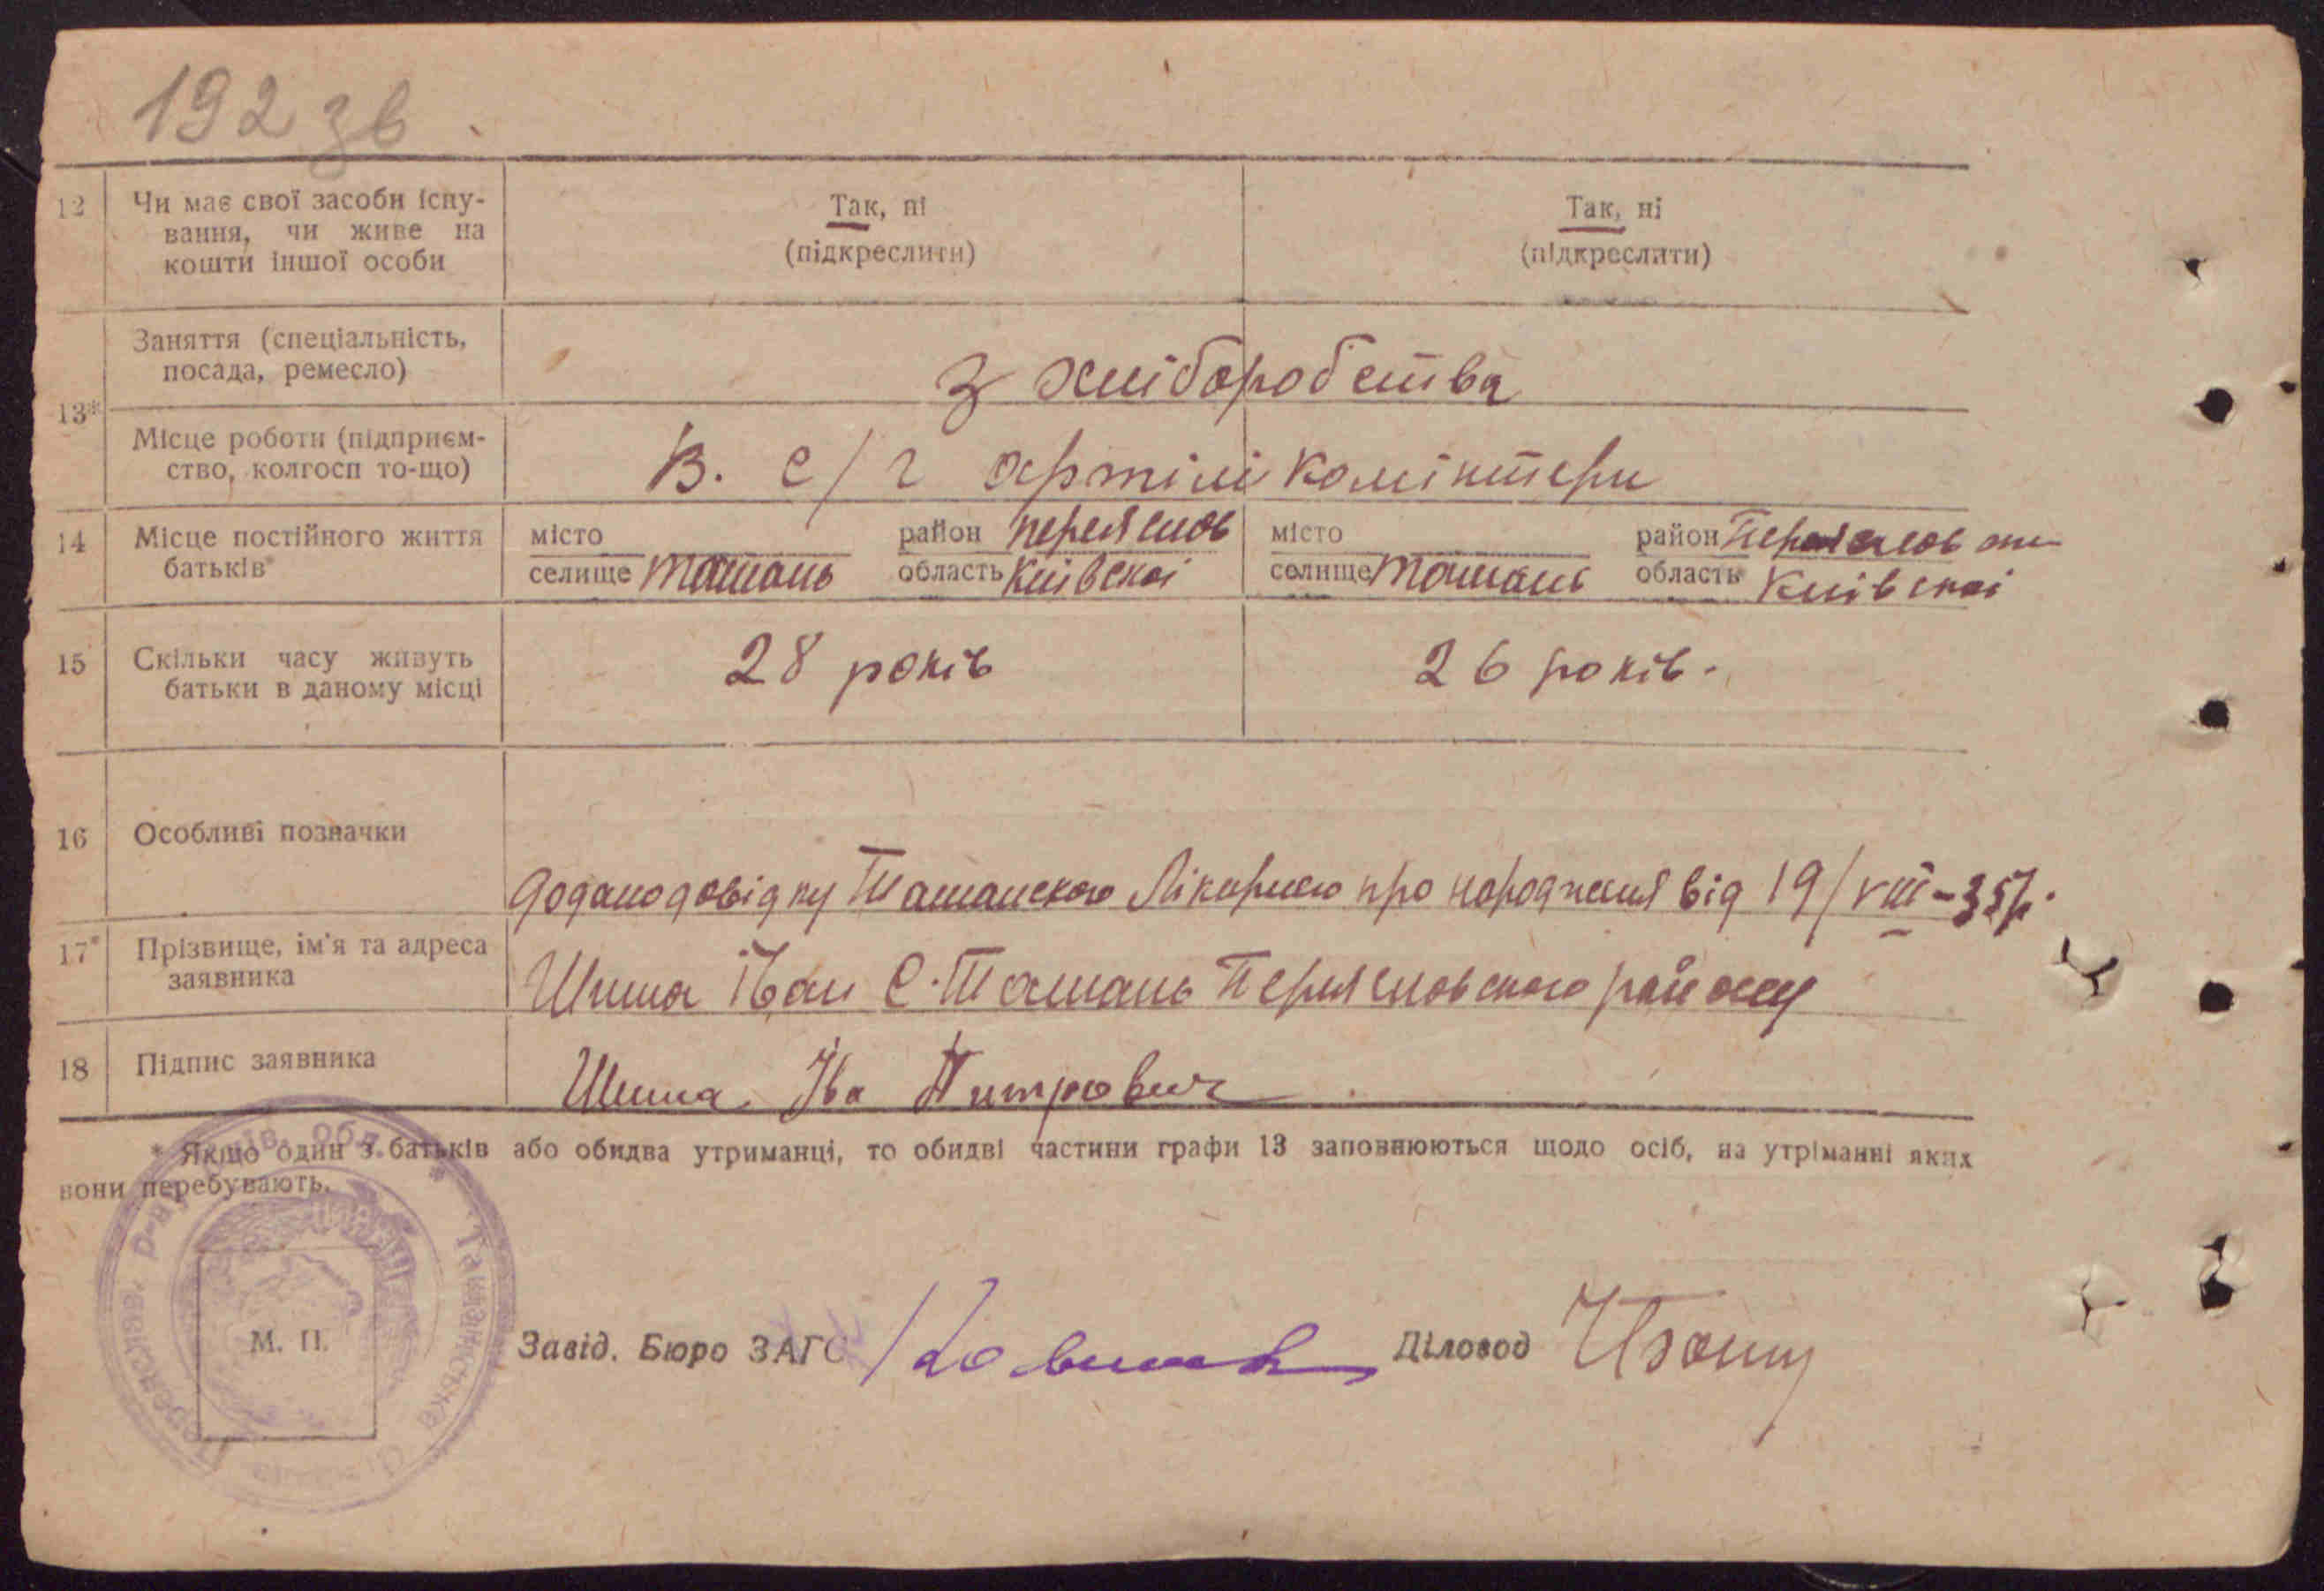 192 зв
12 Чи має свої засоби існу-
вання, чи живе на
кошти іншої особи
Так, ні
(підкреслити)
Так, ні
(підкреслити)
13*
Заняття (спеціальність,
посада, ремесло)
З хліборобства
Місце роботи (підприєм-
ство, колгосп то-що)
В. с/г артілі комінтерн
14 Місце постійного життя
батьків*
місто
селище Ташань
район переяслов
область Київскоі
місто
селище Ташань
район Переяслов
область Київскоі
15 Скільки часу живуть
батьки в даному місці
28 років
26 років.
16 Особливі позначки
Додано довідку Ташанского Лікарнею про народження від 19/VIII-35р.
17* Прізвище, ім'я та адреса
заявника
Шиша Іван С. Ташань Переясловского району
18 Підпис заявника
Шиша Іва Питрович
* Якщо один з батьків або обидва утриманці, то обидві частини графи 13 заповнюються щодо осіб, на утріманні яких
вони перебувають.
М. П.
Завід. Бюро ЗАГС
Діловод